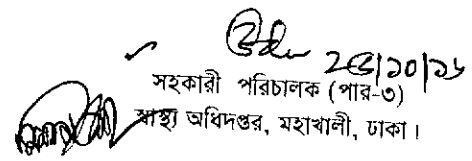 সহকারী পরিচালক (পার-৩)
স্বাস্থ্য অধিদপ্তর, মহাখালী, ঢাকা।